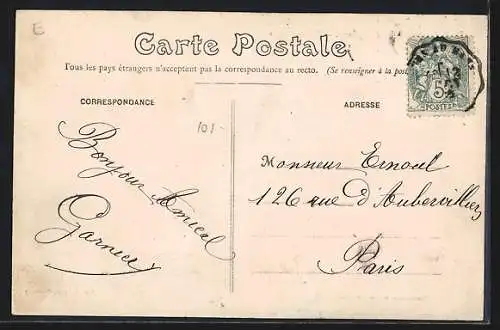 E
Carte Postale
Tous les pays étrangers n'acceptent pas la correspondance au recto. (Se renseigner à la poste
CORRESPONDANCE
ADRESSE
101
Bonjour Amical
Garnier
Monsieur Ernoul
126 rue d'Aubervilliers
Paris
5
POSTES